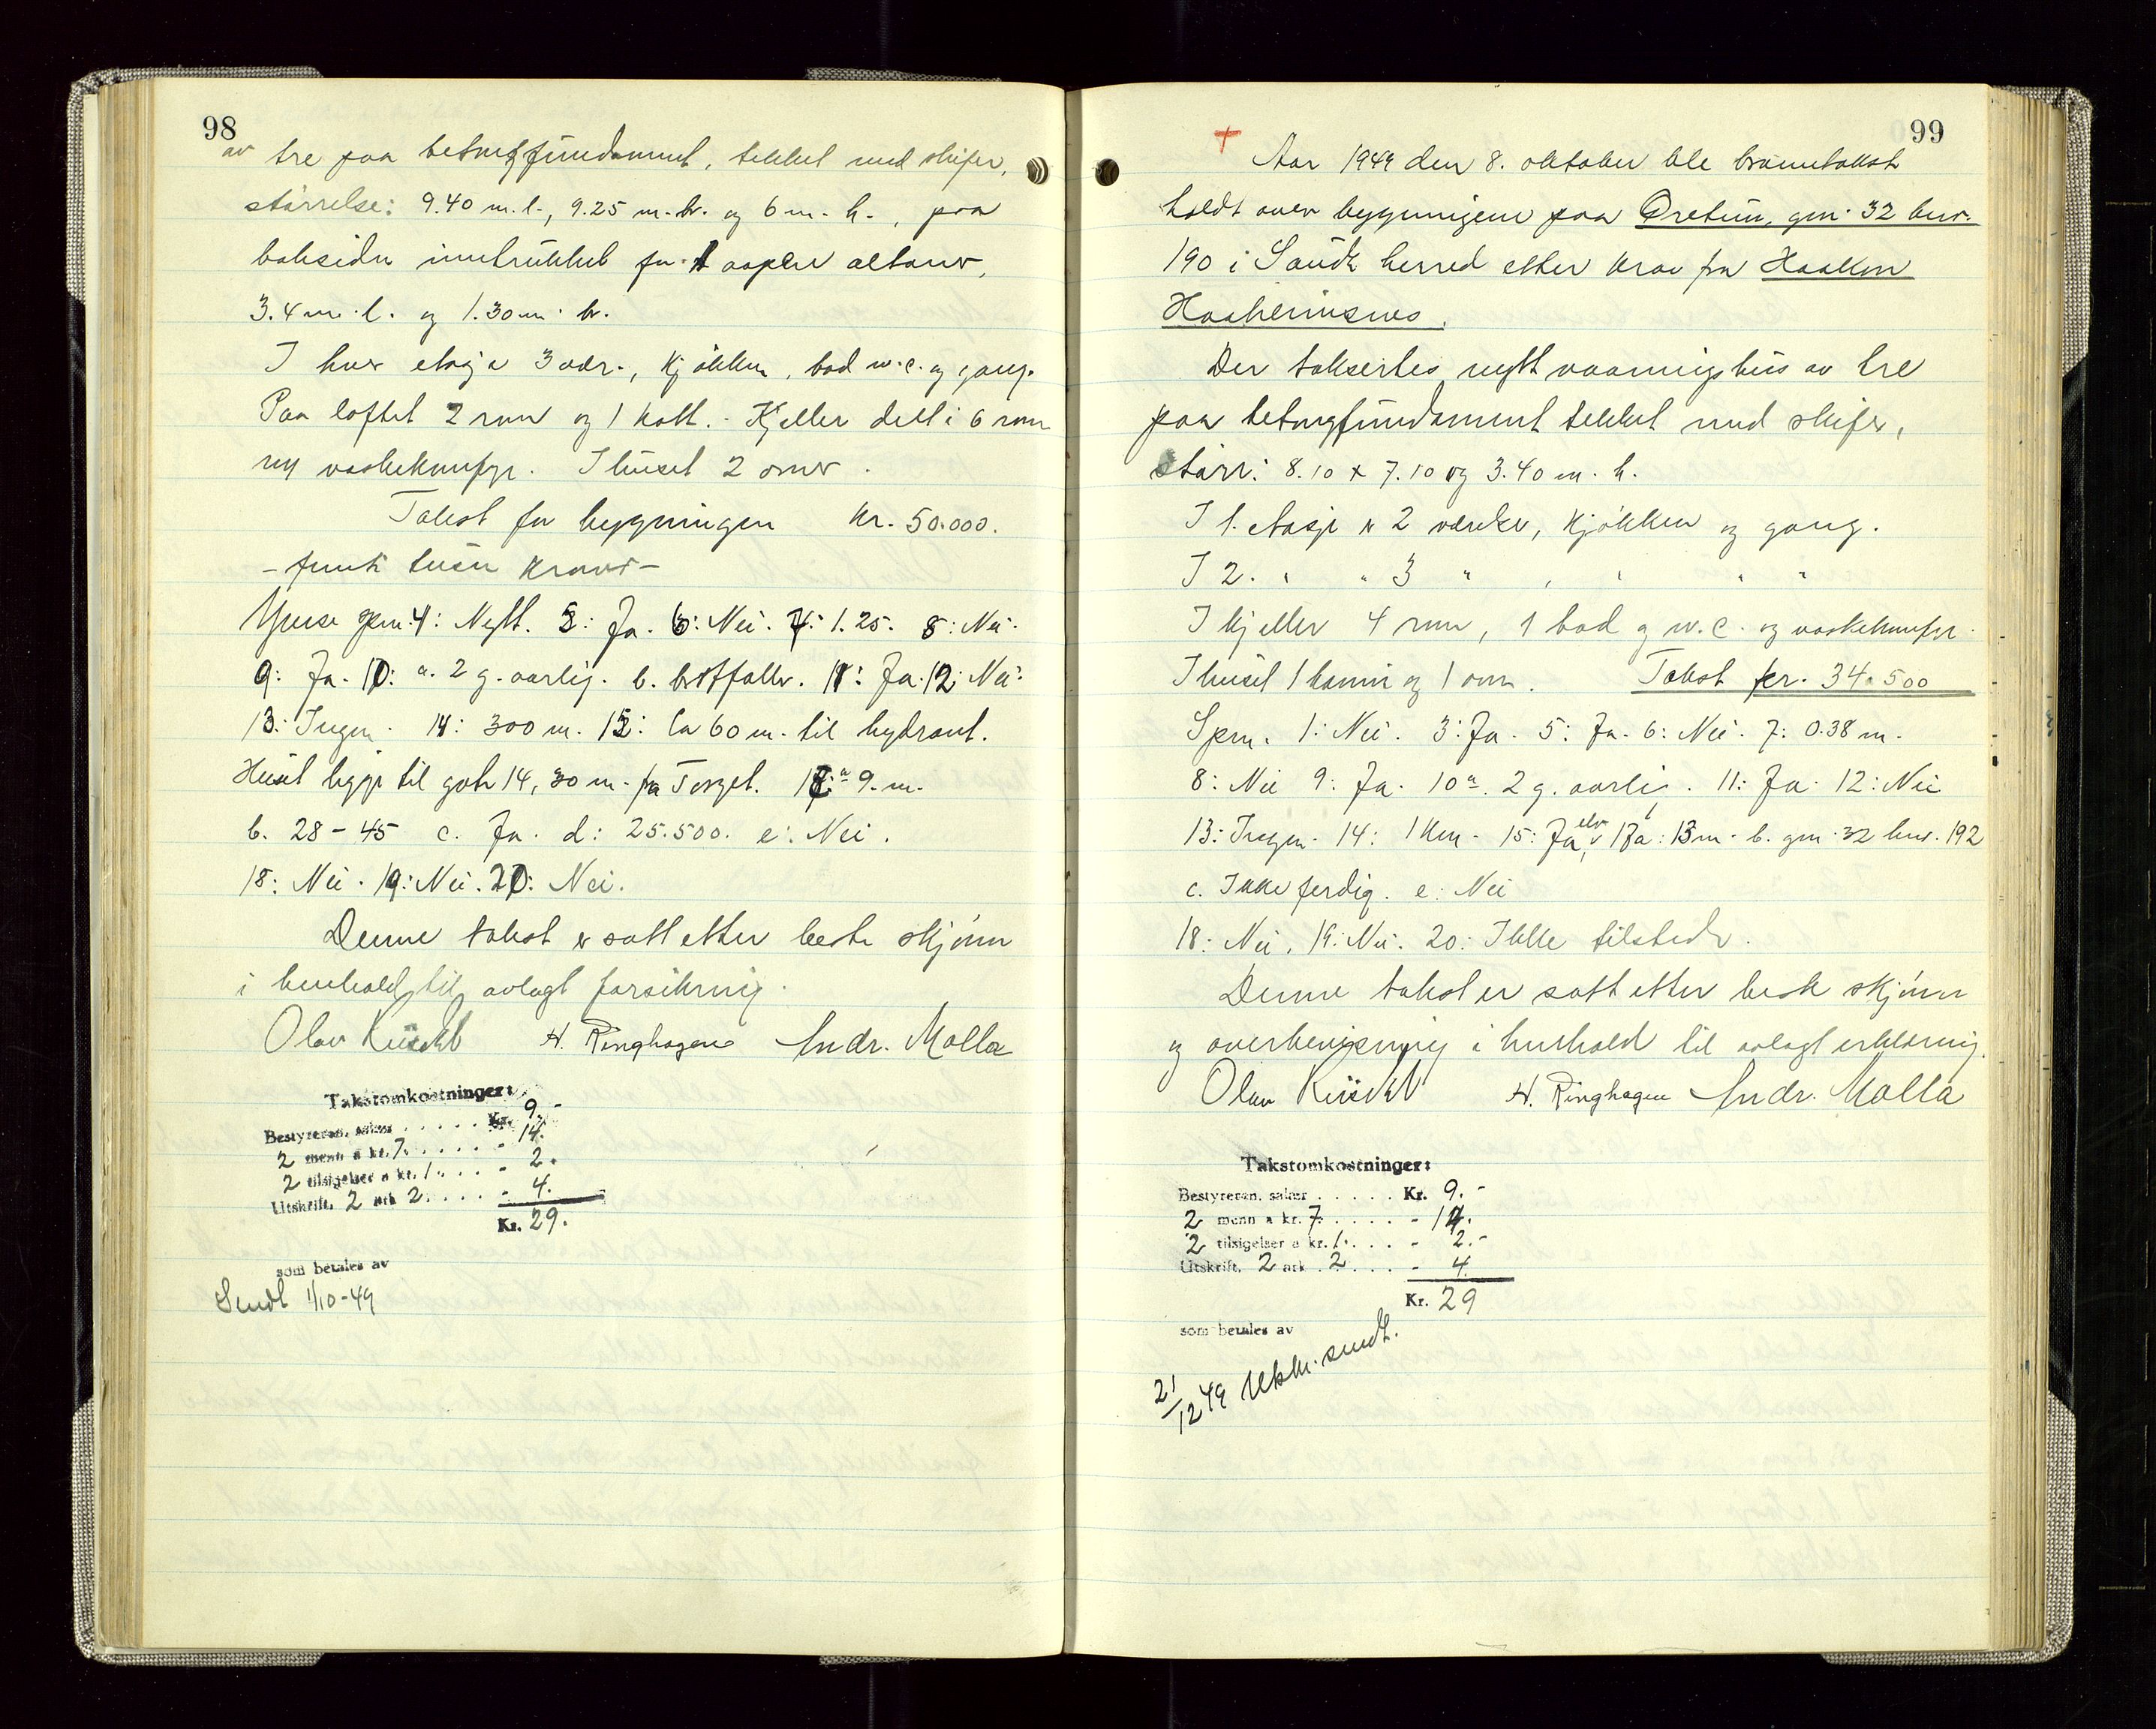 98
av tre paa betongfundament, tekket med skifer,
størrelse: 9.40 m. l., 9.25 m. br. og 6 m. h., paa
baksiden inntrukket for 1 aapen altan,
3.4 m. l. og 1.30 m. br.
I hver etasje 3 vær., kjøkken, bad w.c. og gang.
Paa loftet 2 rum og 1 kott. - Kjeller delt i 6 rum
ny vaskekumfyr. I huset 2 ovner.
Takst for bygningen kr. 50.000.
- femti tusen kroner -
spm. 4: Nytt. 5: Ja. 6: Nei. 7: 1.25. 8: Nei.
9: Ja. 10: a. 2 g. aarlig. b. bortfaller. 11: Ja. 12: Nei.
13: Ingen. 14: 300 m. 15: Ca 60 m. til hydrant.
Huset ligger til gate 14, 30 m. fra Torget. 17: a 9. m.
b. 28 - 45 c. Ja. d: 25.500. e: Nei.
18: Nei. 19: Nei. 20: Nei.
Denne takst er satt etter beste skjønn
i henhold til avlagt forsikring.
Olav H. Ringhagen Andr. Malla
Takstomkostninger:
Bestyreren, salær . . . . . Kr. 9.-
2 menn a kr. 7. . . . . - 14.
2 tilsigelser a kr. 1. . . . - 2.
Utskrift, 2 ark 2. . . . - 4.
Kr. 29.
som betales av
Sendt 1/10-49
99
+ Aar 1949 den 8. oktober ble branntakst
holdt over bygningene paa Øretun, gnr. 32 bnr.
190 i Sauda herred etter krav fra Haakon

Der taksertes nytt vaaningshus av tre
paa betongfundament tekket med skifer,
størr: 8.10 x 7.10 og 3.40 m. h.
I 1. etasje er 2 værelser, kjøkken og gang.
I 2. " " 3 " , " " "
I kjeller 4 rum, 1 bad og w.c. og vaskekumfyr.
I huset 1 kamin og 1 ovn. Takst kr. 34.500
Spm. 1: Nei. 3: Ja. 5: Ja. 6: Nei. 7: 0.38 m.
8: Nei 9: Ja. 10 a. 2 g. aarlig. 11: Ja. 12: Nei
13: Ingen. 14: 1 km. 15: Ja, elv 17a: 13 m. b. gnr. 32 bnr. 192
c. Ikke ferdig. e: Nei
18: Nei. 19: Nei. 20: Ikke tilstede.
Denne takst er satt etter beste skjønn
og overbevisning i henhold til avlagt erklæring.
Olav H. Ringhagen Andr. Malla
Takstomkostninger:
Bestyreren, salær . . . . . Kr. 9.-
2 menn a kr. 7. . . . . - 14.
2 tilsigelser a kr. 1. . . . - 2.-
Utskrift, 2 ark . 2 . . . - 4.
Kr. 29
som betales av
21/12 49 Utskr. sendt.